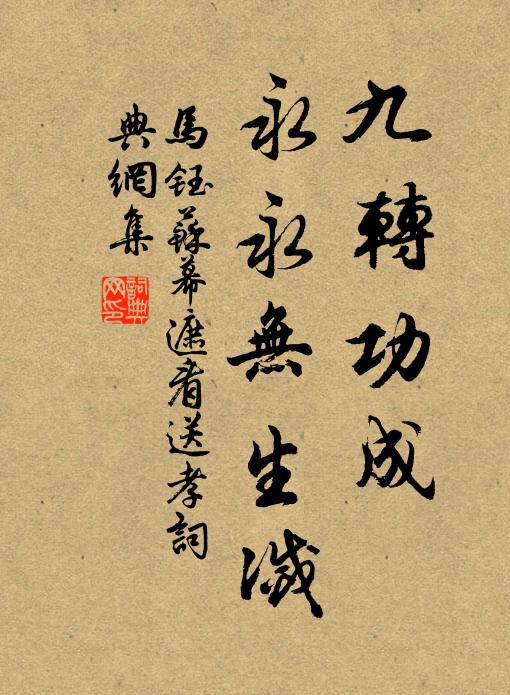 九轉功成
永永無生滅
馬鈺蘇幕遮者送孝詞
典網集
詞典網印